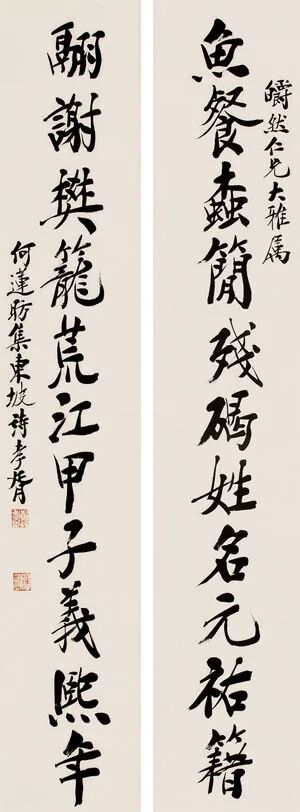 皭然仁兄大雅属
魚餐蠹簡殘碣姓名元祐籍
翮謝樊籠荒江甲子義熙年
何蓮舫集東坡詩孝胥